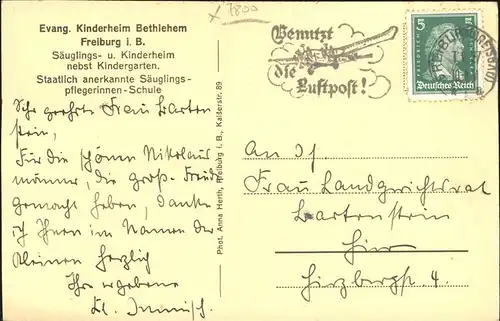 7800
Evang. Kinderheim Bethlehem
Freiburg i. B.
Säuglings- u. Kinderheim
nebst Kindergarten.
Staatlich anerkannte Säuglings-
pflegerinnen-Schule
Sehr geehrte Frau Barten
stein,
Für die schönen Nikolaus
männer, die groß. Freude
gemacht haben, danke
ich Ihnen im Namen der
Kleinen herzlich
Ihr ergebene
Phot. Anna Herth, Freiburg i. B., Kaiserstr. 89
Benutzt
die
Luftpost!
5
Deutsches Reich
An Df.
Frau Landgerichtsrat
Bartenstein
Hier
Hirzbergstr. 4.